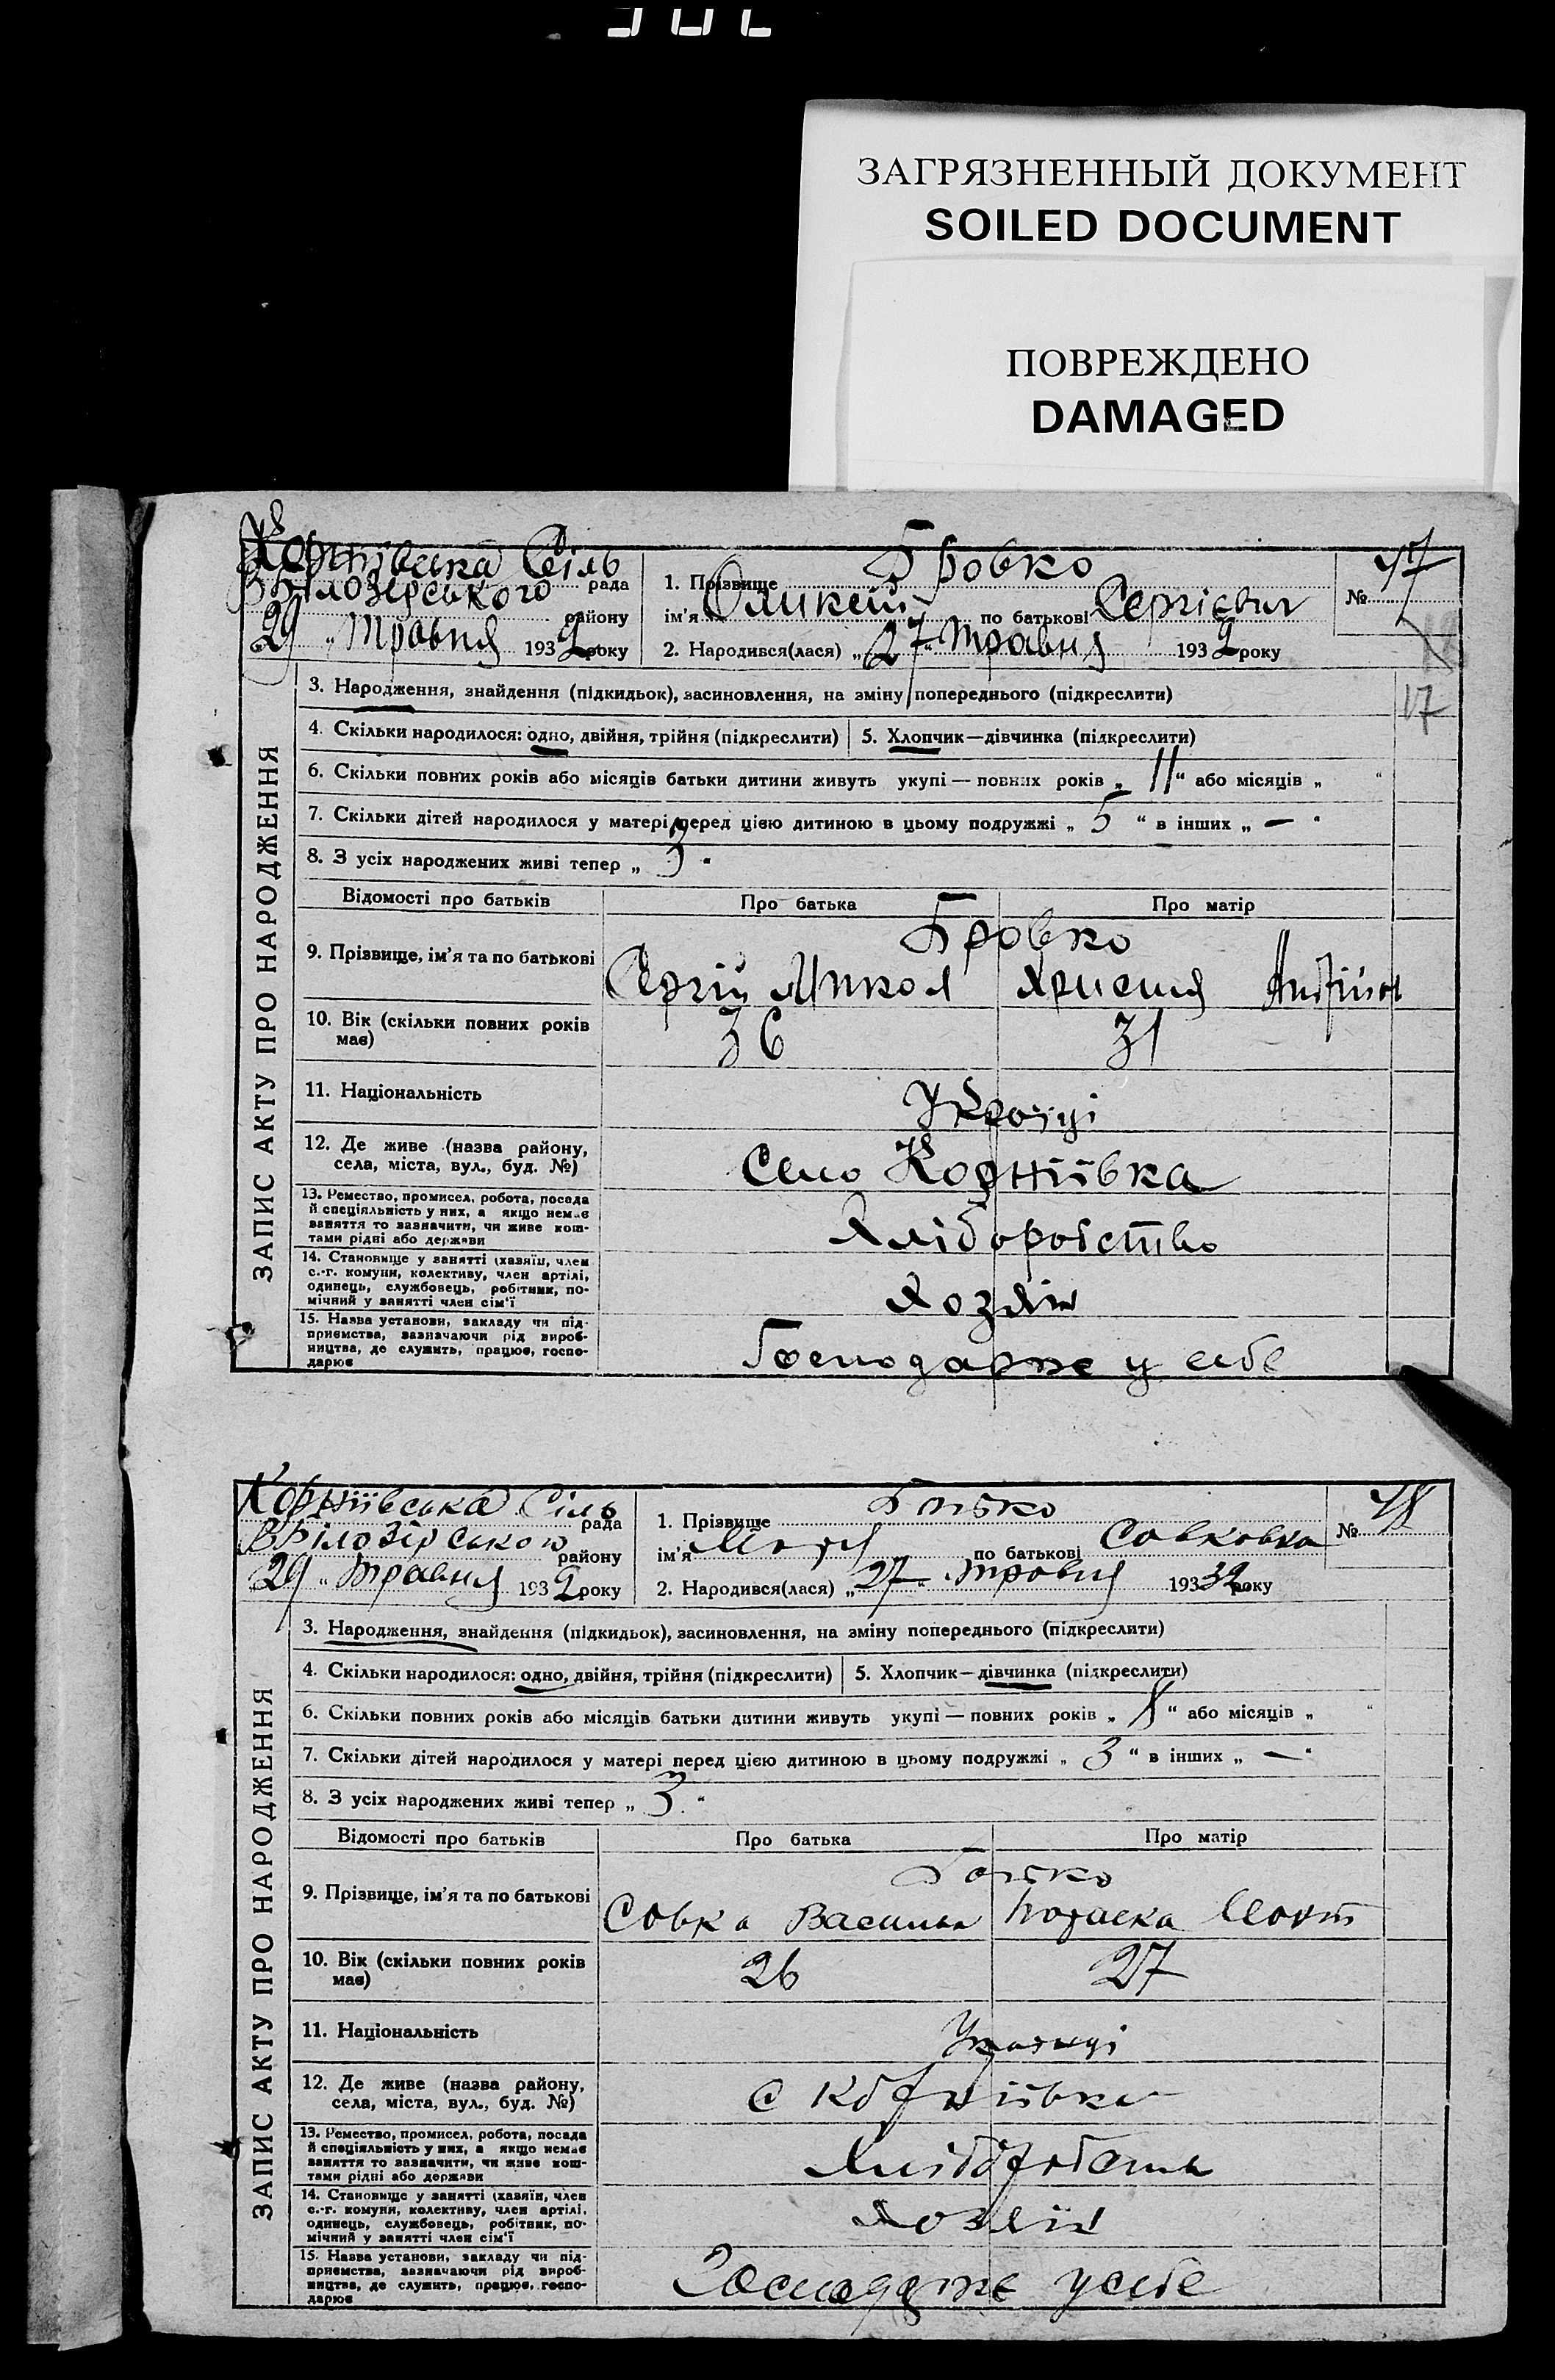 ЗАГРЯЗНЕННЫЙ ДОКУМЕНТ
SOILED DOCUMENT
ПОВРЕЖДЕНО
DAMAGED
Корніївська Сіль рада
ВБілозерського району
29 „ Травня 1932 року
1. Прізвище Бровко
ім'я по батькові Сергієвич
2. Народився(лася) „27“ Травня 1932 року
№ 47
17
ЗАПИС АКТУ ПРО НАРОДЖЕННЯ
3. Народження, знайдення (підкидьок), засиновлення, на зміну попереднього (підкреслити)
4. Скільки народилося: одно, двійня, трійня (підкреслити) 5. Хлопчик—дівчинка (підкреслити)
6. Скільки повних років або місяців батьки дитини живуть укупі — повних років „ 11 “ або місяців „ “
7. Скільки дітей народилося у матері перед цією дитиною в цьому подружжі „ 5 “ в інших „ — “
8. З усіх народжених живі тепер „ 3 “
Відомості про батьків Про батька Про матір
9. Прізвище, ім'я та по батькові Бровко
Сергій Микол
10. Вік (скільки повних років має) 36 31
11. Національність
12. Де живе (назва району, села, міста, вул., буд. №) Село Корніївка
13. Ремество, промисел, робота, посада й спеціяльність у них, а якщо немає заняття то зазначити, чи живе коштами рідні або держави Хліборобство
14. Становище у занятті (хазяїн, член с.-г. комуни, колективу, член артілі, одинець, службовець, робітник, помічний у занятті член сім'ї Хозяїн
15. Назва установи, закладу чи підприємства, зазначаючи рід виробництва, де служить, працює, господарює Господарює у себе
Корніївська Сіль рада
ВБілозірського району
29 „ Травня 1932 року
1. Прізвище
ім'я по батькові Совковна
2. Народився(лася) „27“ Травня 19332 року
№ 48
ЗАПИС АКТУ ПРО НАРОДЖЕННЯ
3. Народження, знайдення (підкидьок), засиновлення, на зміну попереднього (підкреслити)
4. Скільки народилося: одно, двійня, трійня (підкреслити) 5. Хлопчик—дівчинка (підкреслити)
6. Скільки повних років або місяців батьки дитини живуть укупі — повних років „ 8 “ або місяців „ “
7. Скільки дітей народилося у матері перед цією дитиною в цьому подружжі „ 3 “ в інших „ — “
8. З усіх народжених живі тепер „ 3 “
Відомості про батьків Про батька Про матір
9. Прізвище, ім'я та по батькові
Совка
10. Вік (скільки повних років має) 26 27
11. Національність
12. Де живе (назва району, села, міста, вул., буд. №) с Корніївка
13. Ремество, промисел, робота, посада й спеціяльність у них, а якщо немає заняття то зазначити, чи живе коштами рідні або держави
14. Становище у занятті (хазяїн, член с.-г. комуни, колективу, член артілі, одинець, службовець, робітник, помічний у занятті член сім'ї Хозяїн
15. Назва установи, закладу чи підприємства, зазначаючи рід виробництва, де служить, працює, господарює Господарює у себе